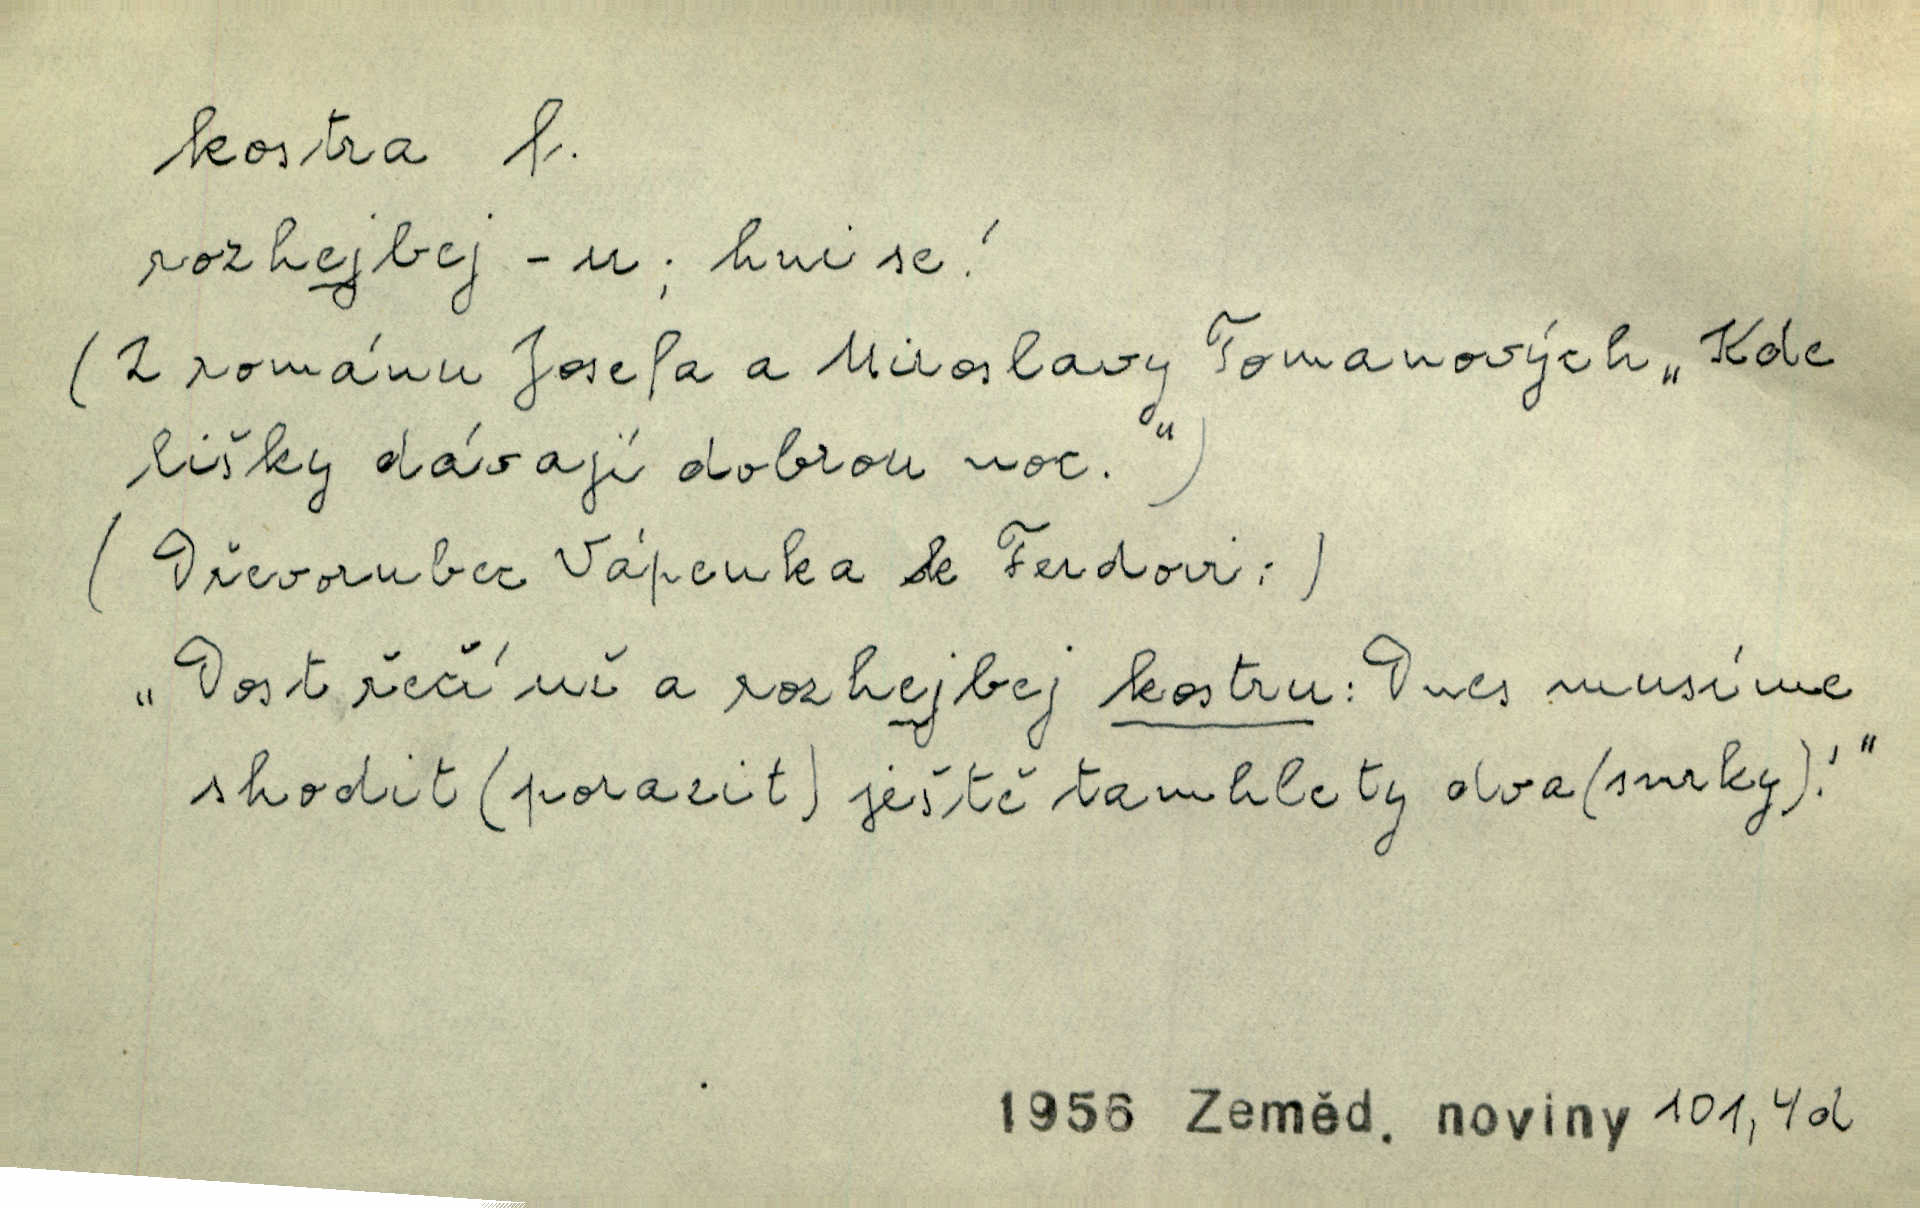 kostra f.
rozhejbej -u; hni se!
(Z románu Josefa a Miroslavy Tomanových „Kde
lišky dávají dobrou noc.“)
(Dřevorubec Vápenka k Ferdovi:)
„Dost řečí už a rozhejbej kostru: Dnes musíme
shodit (porazit) ještě tamhlety dva (smrky)!“
1956 Zeměd. noviny 101, 4d